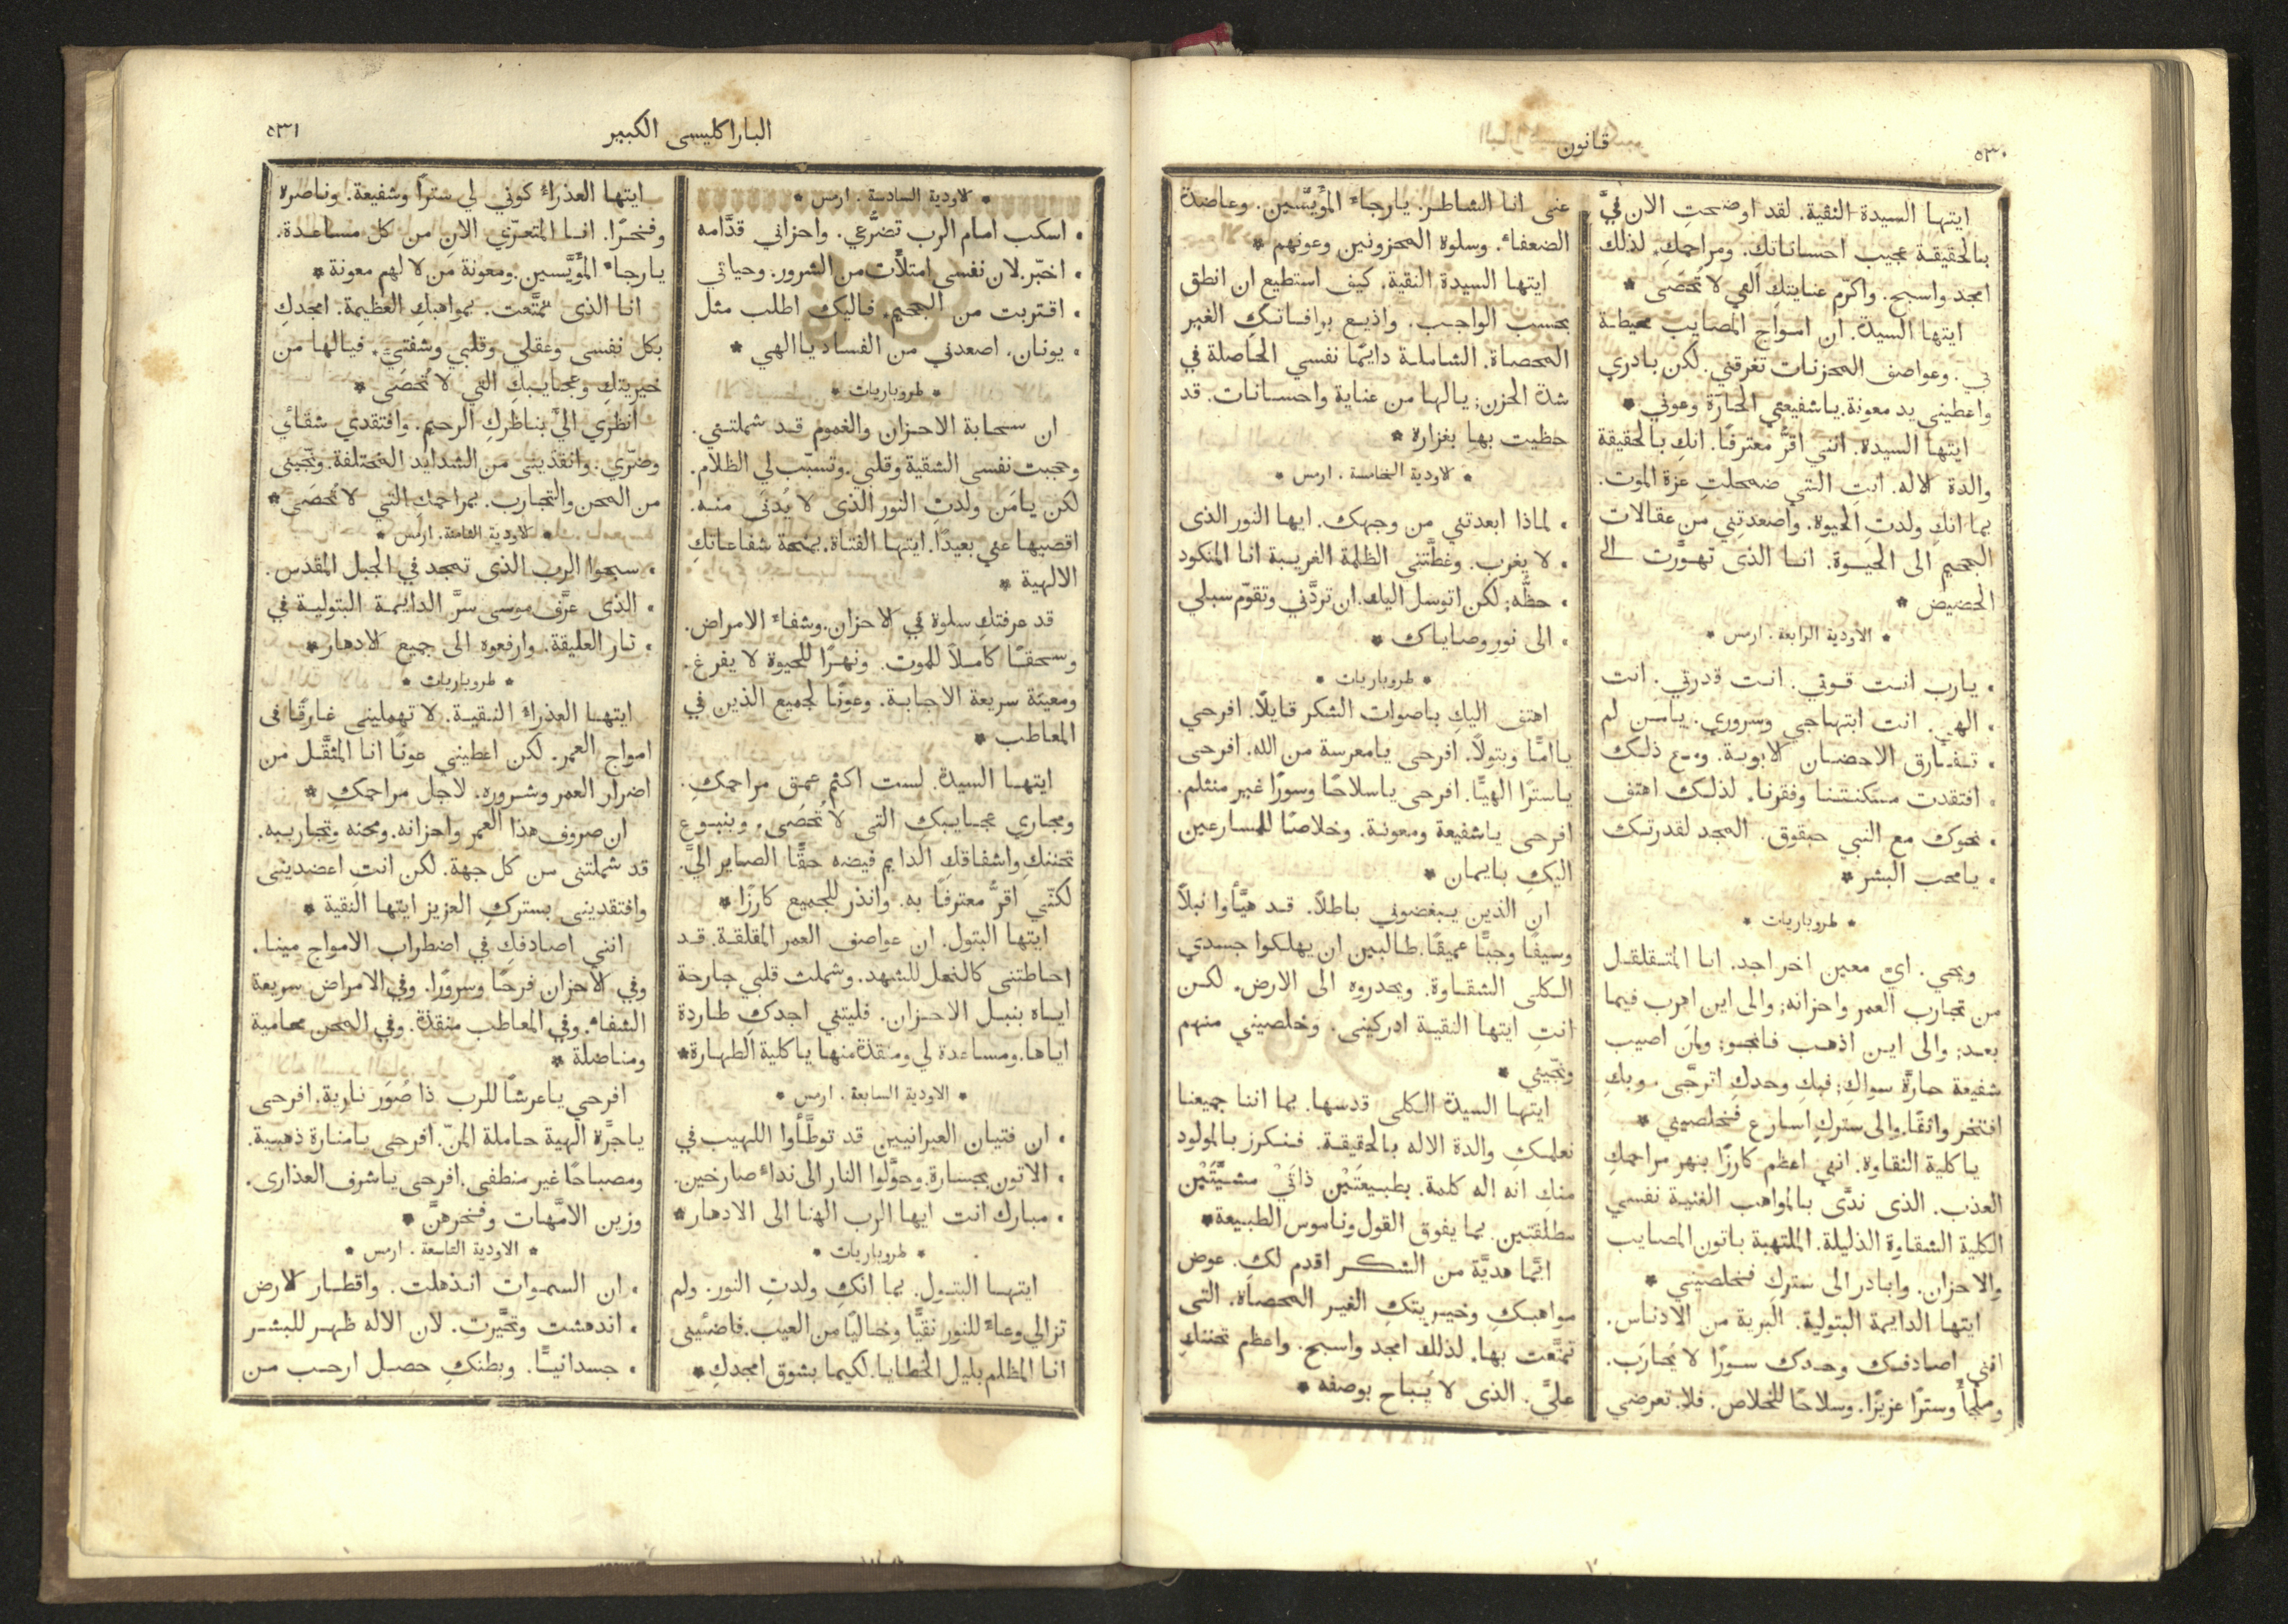 ٥٣٠
قانون
ايتها السيدة النقية. لقد اوضحتِ الان فيَّ
بالحقيقة عجيب احساناتكِ. ومراحمكِ. لذلك
امجد واسبح. واكرّم عنايتك التي لا تُحصَى *
ايتها السيدة. ان امواج المصايب محيطة
بي. وعواصف المحزنات تغرقني. لكن بادري
واعطيني يد معونة. ياشفيعتي الحارَّة وعوني *
ايتها السيدة. انني اقرُّ معترفًا. انكِ بالحقيقة
والدة الاله. انتِ التي ضمحلتِ عزة الموت.
بما انكِ ولدتِ الحيوة. واصعدتِني من عقالات
الجحيم الى الحيوة. انا الذى تهوَّرت الى
الحضيض *
* الاودية الرابعة. ارمس *
• يارب انت قوتي. انت قدرتي. انت
• الهي. انت ابتهاجي وسروري. يامن لم
• تفارق الاحضان الابوية. ومع ذلك
• افتقدت مسكنتنا وفقرنا. لذلك اهتف
• نحوك مع النبي حبقوق. المجد لقدرتك
• يامحب البشر *
* طروباريات *
ويحي. ايّ معين اخر اجد. انا المتقلقل
من تجارب العمر واحزانه; والى اين اهرب فيما
بعد; والى اين اذهب فانجو; ولمَن اصيب
شفيعة حارَّة سواك; فبكِ وحدكِ اترجَّى. وبكِ
افتخر واثقًا. والى ستركِ اسارع فخلصيني *
ياكلية النقاوة. انني اعظم كارزًا بنهر مراحمكِ
العذب. الذى ندَّى بالمواهب الغنية نفسي
الكلية الشقاوة الذليلة. الملتهبة باتون المصايب
والاحزان. وابادر الى ستركِ فخلصيني *
ايتها الدايمة البتولية. البرية من الادناس.
انني اصادفك وحدك سورًا لا يُحارَب.
وملجأً وسترًا عزيزًا. وسلاحًا للخلاص. فلا تعرضي
عنى انا الشاطر. يارجاء المؤَيَّسين. وعاضدة
الضعفاء. وسلوة المحزونين وعونهم *
ايتها السيدة النقية. كيف استطيع ان انطق
بحسب الواجب. واذيع برافاتكِ الغير
المحصاة. الشاملة دايمًا نفسي الحاصلة في
شدة الحزن; يالها من عناية واحسانات. قد
حظيت بها بغزارة *
* الاودية الخامسة. ارمس *
• لماذا ابعدتني من وجهك. ايها النور الذى
• لا يغرب. وغطَّتني الظلمة الغريبة انا المنكود
• حظّه; لكن اتوسل اليك. ان تردَّني وتقوّم سبلي
• الى نور وصاياك *
* طروباريات *
اهتف اليكِ باصوات الشكر قايلًا. افرحي
ياامًّا وبتولًا. افرحى يامعرسة من الله. افرحى
ياسترًا الهيًّا. افرحى ياسلاحًا وسورًا غير منثلم.
افرحى ياشفيعة ومعونة. وخلاصًا للمسارعين
اليكِ بايمان *
ان الذين يبغضونى باطلًا. قد هيَّأوا نبلًا
وسيفًا وجبًّا عميقًا. طالبين ان يهلكوا جسدي
الكلى الشقاوة. ويحدروه الى الارض. لكن
انتِ ايتها النقية ادركينى. وخلصيني منهم
ونجّيني *
ايتها السيدة الكلى قدسها. بما اننا جميعنا
نعلمكِ والدة الاله بالحقيقة. فنكرز بالمولود
منكِ انه اله كلمة. بطبيعتَيْن ذاتَيْ مشيَّتَيْن
مطلقتين. بما يفوق القول وناموس الطبيعة *
ايَّما هديَّة من الشكر اقدم لكِ. عوض
مواهبكِ وخيريتكِ الغير المحصاة. التى
تمتَّعت بها. لذلك امجد واسبح. واعظم تحننكِ
عليَّ. الذى لا يُباح بوصفه *
الباراكليسى الكبير
٥٣١
* الاودية السادسة. ارمس *
• اسكب امام الرب تضرُّعي. واحزاني قدَّامه
• اخبّر. لان نفسى امتلأَت من الشرور. وحياتي
• اقتربت من الجحيم. فاليك اطلب مثل
• يونان. اصعدني من الفساد ياالهي *
* طروباريات *
ان سحابة الاحزان والغموم قد شملتني.
وحجبت نفسى الشقية وقلبي. وتسبّب لي الظلام.
لكن يامَن ولدتِ النور الذى لا يُدنَى منه.
اقصيها عني بعيدًا. ايتها الفتاة. بمنحة شفاعاتكِ
الالهية *
قد عرفتكِ سلوة في الاحزان. وشفاء الامراض.
وسحقًا كاملًا للموت. ونهرًا للحيوة لا يفرغ.
ومعينَة سريعة الاجابة. وعونًا لجميع الذين في
المعاطب *
ايتها السيدة. لست اكتم عمق مراحمكِ.
ومجاري عجايبك التى لا تُحصَى. وينبوع
تحننكِ واشفاقكِ الدايم فيضه حقًّا الصاير اليَّ.
لكنّني اقرُّ معترفًا به. وانذر للجميع كارزًا *
ايتها البتول. ان عواصف العمر المقلقة. قد
احاطتنى كالنحل للشهد. وشملت قلبي جارحة
اياه بنبل الاحزان. فليتني اجدكِ طاردة
اياها. ومساعدة لي ومنقذة منها ياكلية الطهارة *
* الاودية السابعة. ارمس *
• ان فتيان العبرانيين قد توطَّأوا اللهيب في
• الاتون بجسارة. وحوَّلوا النار الى نداء صارخين.
• مبارك انت ايها الرب الهنا الى الادهار *
* طروباريات *
ايتها البتول. بما انكِ ولدتِ النور. ولم
تزالي وعاءً للنور نقيًّا وخاليًا من العيب. فاضئينى
انا المظلم بليل الخطايا. لكيما بشوق امجدكِ *
ايتها العذراء كوني لي سترًا وشفيعة. وناصرة
وفخرًا. انا المتعرّي الان من كل مساعدة.
يارجاء المؤَيَّسين. ومعونة مَن لا لهم معونة *
انا الذى تمتَّعت. بمواهبكِ العظيمة. امجدكِ
بكل نفسى وعقلي وقلبي وشفتيَّ. فيالها من
خيريتكِ وعجايبكِ التي لا تُحصَى *
انظري اليَّ بناظركِ الرحيم. وافتقدي شقائي
وضرّي. وانقذينى من الشدايد المختلفة. ونجّينى
من المحن والتجارب. بمراحمكِ التي لا تُحصَى *
* الاودية الثامنة. ارمس *
• سبحوا الرب الذى تمجد في الجبل المقدس.
• الذى عرَّف موسى سرَّ الدايمة البتولية في
• نار العليقة. وارفعوه الى جميع الادهار *
* طروباريات *
ايتها العذراء النقية. لا تهمليني غارقًا فى
امواج العمر. لكن اعطيني عونًا انا المثقَّل من
اضرار العمر وشروره. لاجل مراحمكِ *
ان صروف هذا العمر واحزانه. ومحنه وتجاريبه.
قد شملتنى من كل جهة. لكن انتِ اعضدينى
وافتقدينى بستركِ العزيز ايتها النقية *
انني اصادفكِ في اضطراب الامواج مينا.
وفي الاحزان فرحًا وسرورًا. وفي الامراض سريعة
الشفاء. وفي المعاطب منقذة. وفي المحن محامية
ومناضلة *
افرحي ياعرشًا للرب ذا صُوَر نارية. افرحى
ياجرَّة الهية حاملة المنّ. افرحى يامنارة ذهبية.
ومصباحًا غير منطفى. افرحى ياشرف العذارى.
وزين الامَّهات وفخرهنَّ *
* الاودية التاسعة. ارمس *
• ان السموات انذهلت. واقطار الارض
• اندهشت وتحيَّرت. لان الاله ظهر للبشر
• جسدانيًّا. وبطنكِ حصل ارحب من